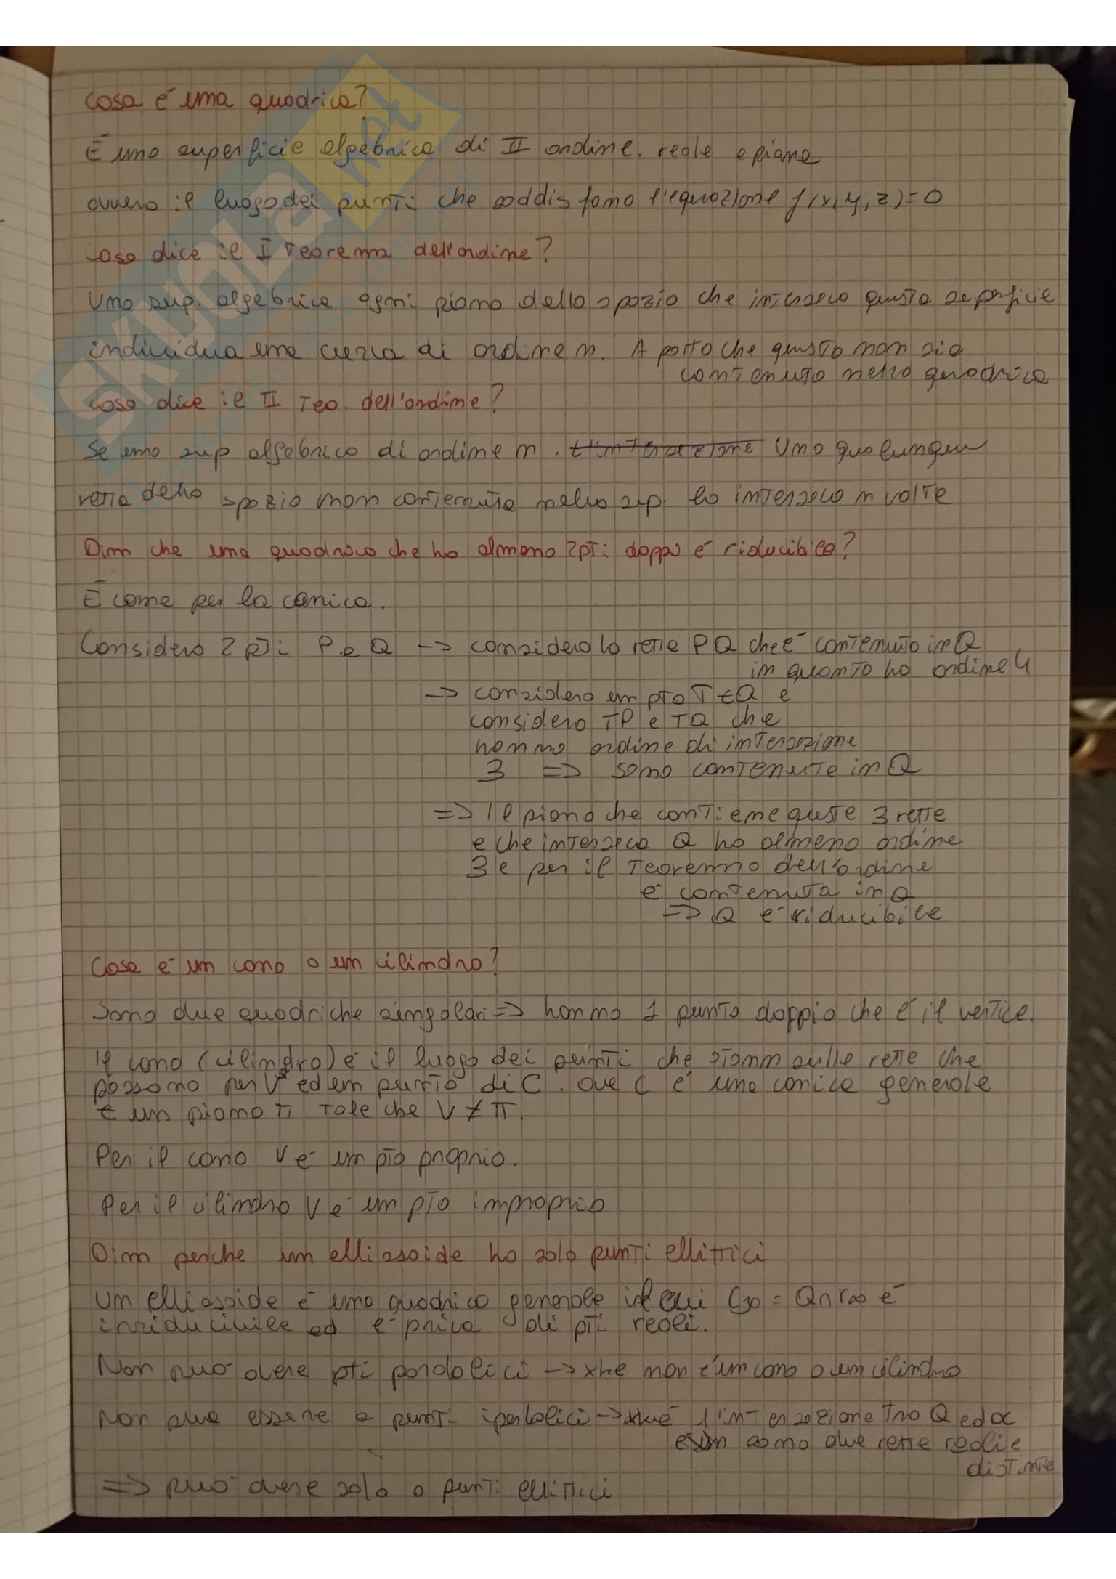 Cosa é una quadrica?
É una superficie algebrica di II ordine, reale o piana
ovvero il luogo dei punti che soddisfano l'equazione f(x,y,z)=0
cosa dice il I Teorema dell'ordine?
Una sup. algebrica ogni piano dello spazio che interseca questa superficie
individua una curva di ordine n. A patto che questo non sia
contenuto nella quadrica
Cosa dice il II Teo dell'ordine?
Se una sup algebrica di ordine n. Una qualunque
retta dello spazio non contenuta nella sup. la interseca n volte
Dim che una quadrica che ha almeno 2 pti doppi é riducibile?
É come per la conica.
Considero 2 pti P e Q -> considero la retta PQ che é contenuta in Q
in quanto ha ordine 4
-> considero un pto T ∈ Q e
considero TP e TQ che
hanno ordine di intersezione
3 => sono contenute in Q
=> Il piano che contiene queste 3 rette
e che interseca Q ha almeno ordine
3 e per il Teorema dell'ordine
é contenuta in Q
=> Q é riducibile
Cosa é un cono o un cilindro?
Sono due quadriche singolari => hanno 1 punto doppio che é il vertice.
Il cono (cilindro) é il luogo dei punti che stanno sulle rette che
passano per V ed un punto di C. ove C é una conica generale
e un piano π tale che V ≠ π.
Per il cono V é un pto proprio.
Per il cilindro V é un pto improprio
Dim perche un ellissoide ha solo punti ellittici
Un ellissoide é una quadrica generale il cui C∞ = Q∩π∞ é
irriducibile ed é priva di pti reali.
Non puó avere pti parabolici -> xke non é un cono o un cilindro
Non puo essere a punti iperbolici -> xké l'intersezione tra Q ed α
sono due rette reali e
distinte
=> puó avere solo o punti ellittici
SKUOLA.net